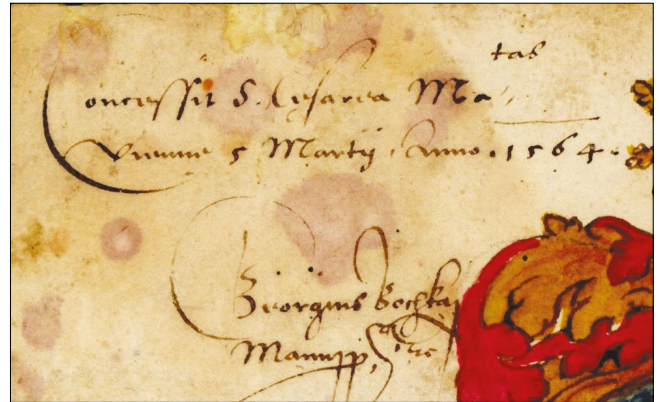 Concessit S. Cesarea Ma^tas
Vienne 5 Martij Anno 1564.
Georgius Bochkaj
Manupp, &c